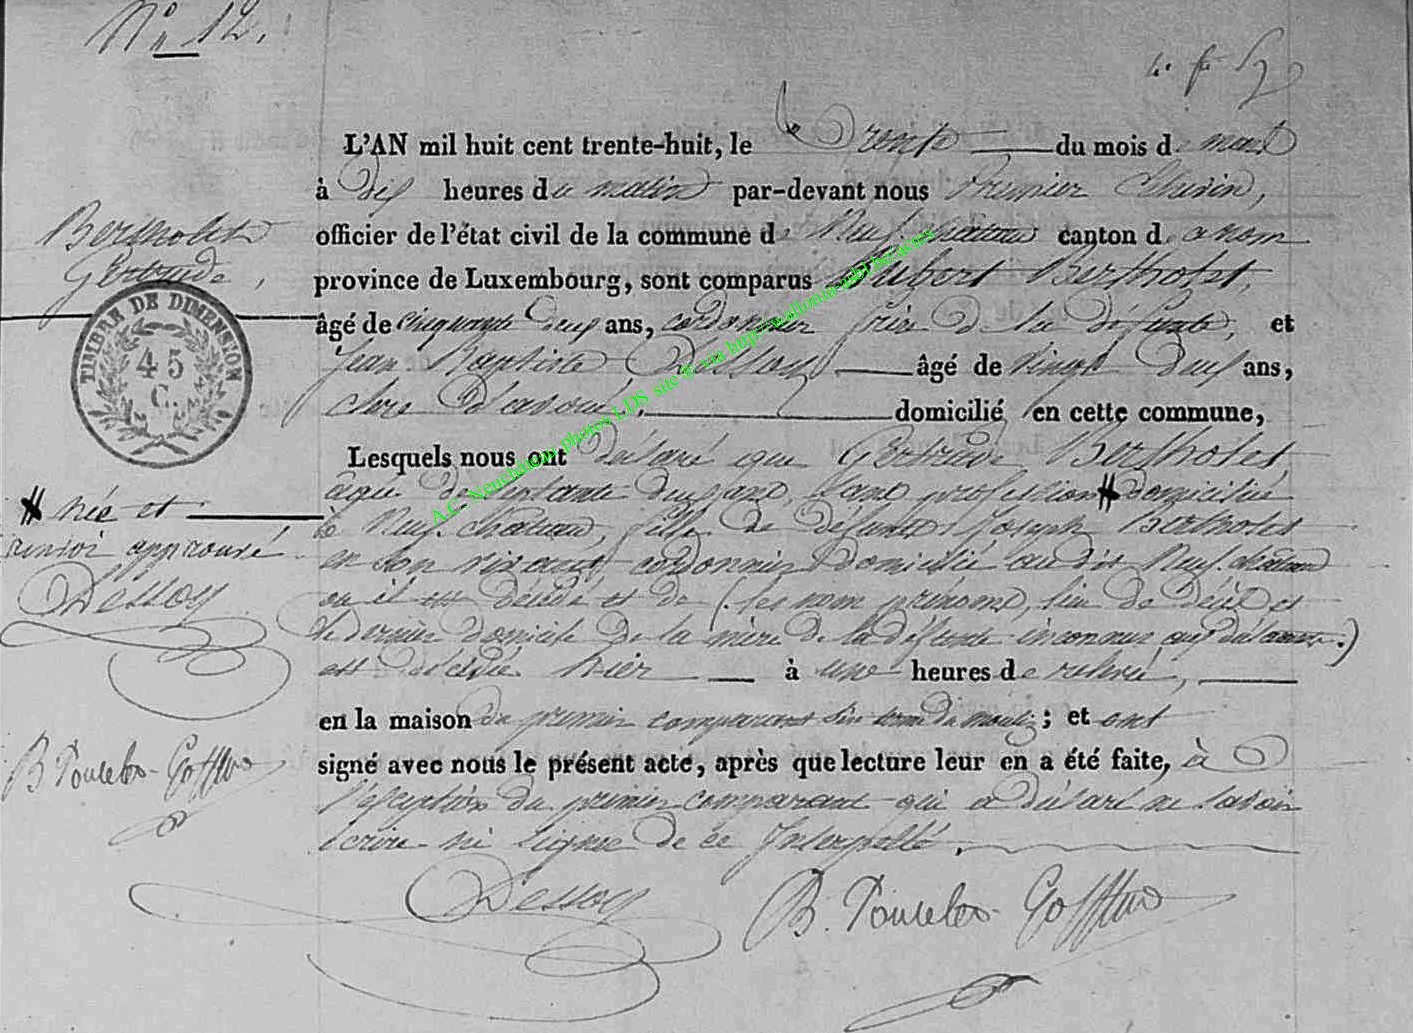 N° 12.
L'AN mil huit cent trente-huit, le Trente du mois de mars
à dix heures du matin par-devant nous Premier Echevin,
Bertholet
Gertrude,
officier de l'état civil de la commune de Neufchateau canton de ce nom
province de Luxembourg, sont comparus Hubert Bertholet,
TIMBRE DE DIMENSION
45
C.
âgé de cinquante deux ans, cordonnier frère de la défunte, et
Jean Baptiste Dessoy âgé de vingt deux ans,
clerc d'avoué, domicilié en cette commune,
Lesquels nous ont déclaré que Gertrude Bertholet,
agée de soixante deux ans, sans profession # domiciliée
# née et
renvoi approuvé
Dessoy
à Neufchateau, fille de défunts Joseph Bertholet
en son vivant cordonnier domicilié au dit Neufchateau
où il est décédé et de (les nom, prénoms, lieu de décès et
le dernier domicile de la mère de la défunte inconnus aux déclarans.)
est décédée hier à une heures de relevée,
en la maison du premier comparant ; et ont
signé avec nous le présent acte, après que lecture leur en a été faite, à
l'exception du premier comparant qui a déclaré ne savoir
écrire ni signer de ce Interpellé.
B Poncelet-Goffin
Dessoy
B. Poncelet-Goffin
A.C. Neufchateau photos LDS site © via http://wallonia-asbl.be/actes